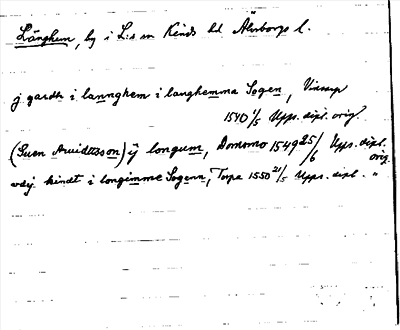 Länghem, by i L:s sn Kinds hd Älvsborgs l.
j gardh i lannghem i langhemma Sogen,
1540 1/5 Upps. dipl. orig.
(Suen Aruidsson) ij longum, Dommo 1549 25/6 Upps. dipl. orig.
vdj kindt i longimme Sogenn, Torpa 1550 21/5 Upps. dipl. "